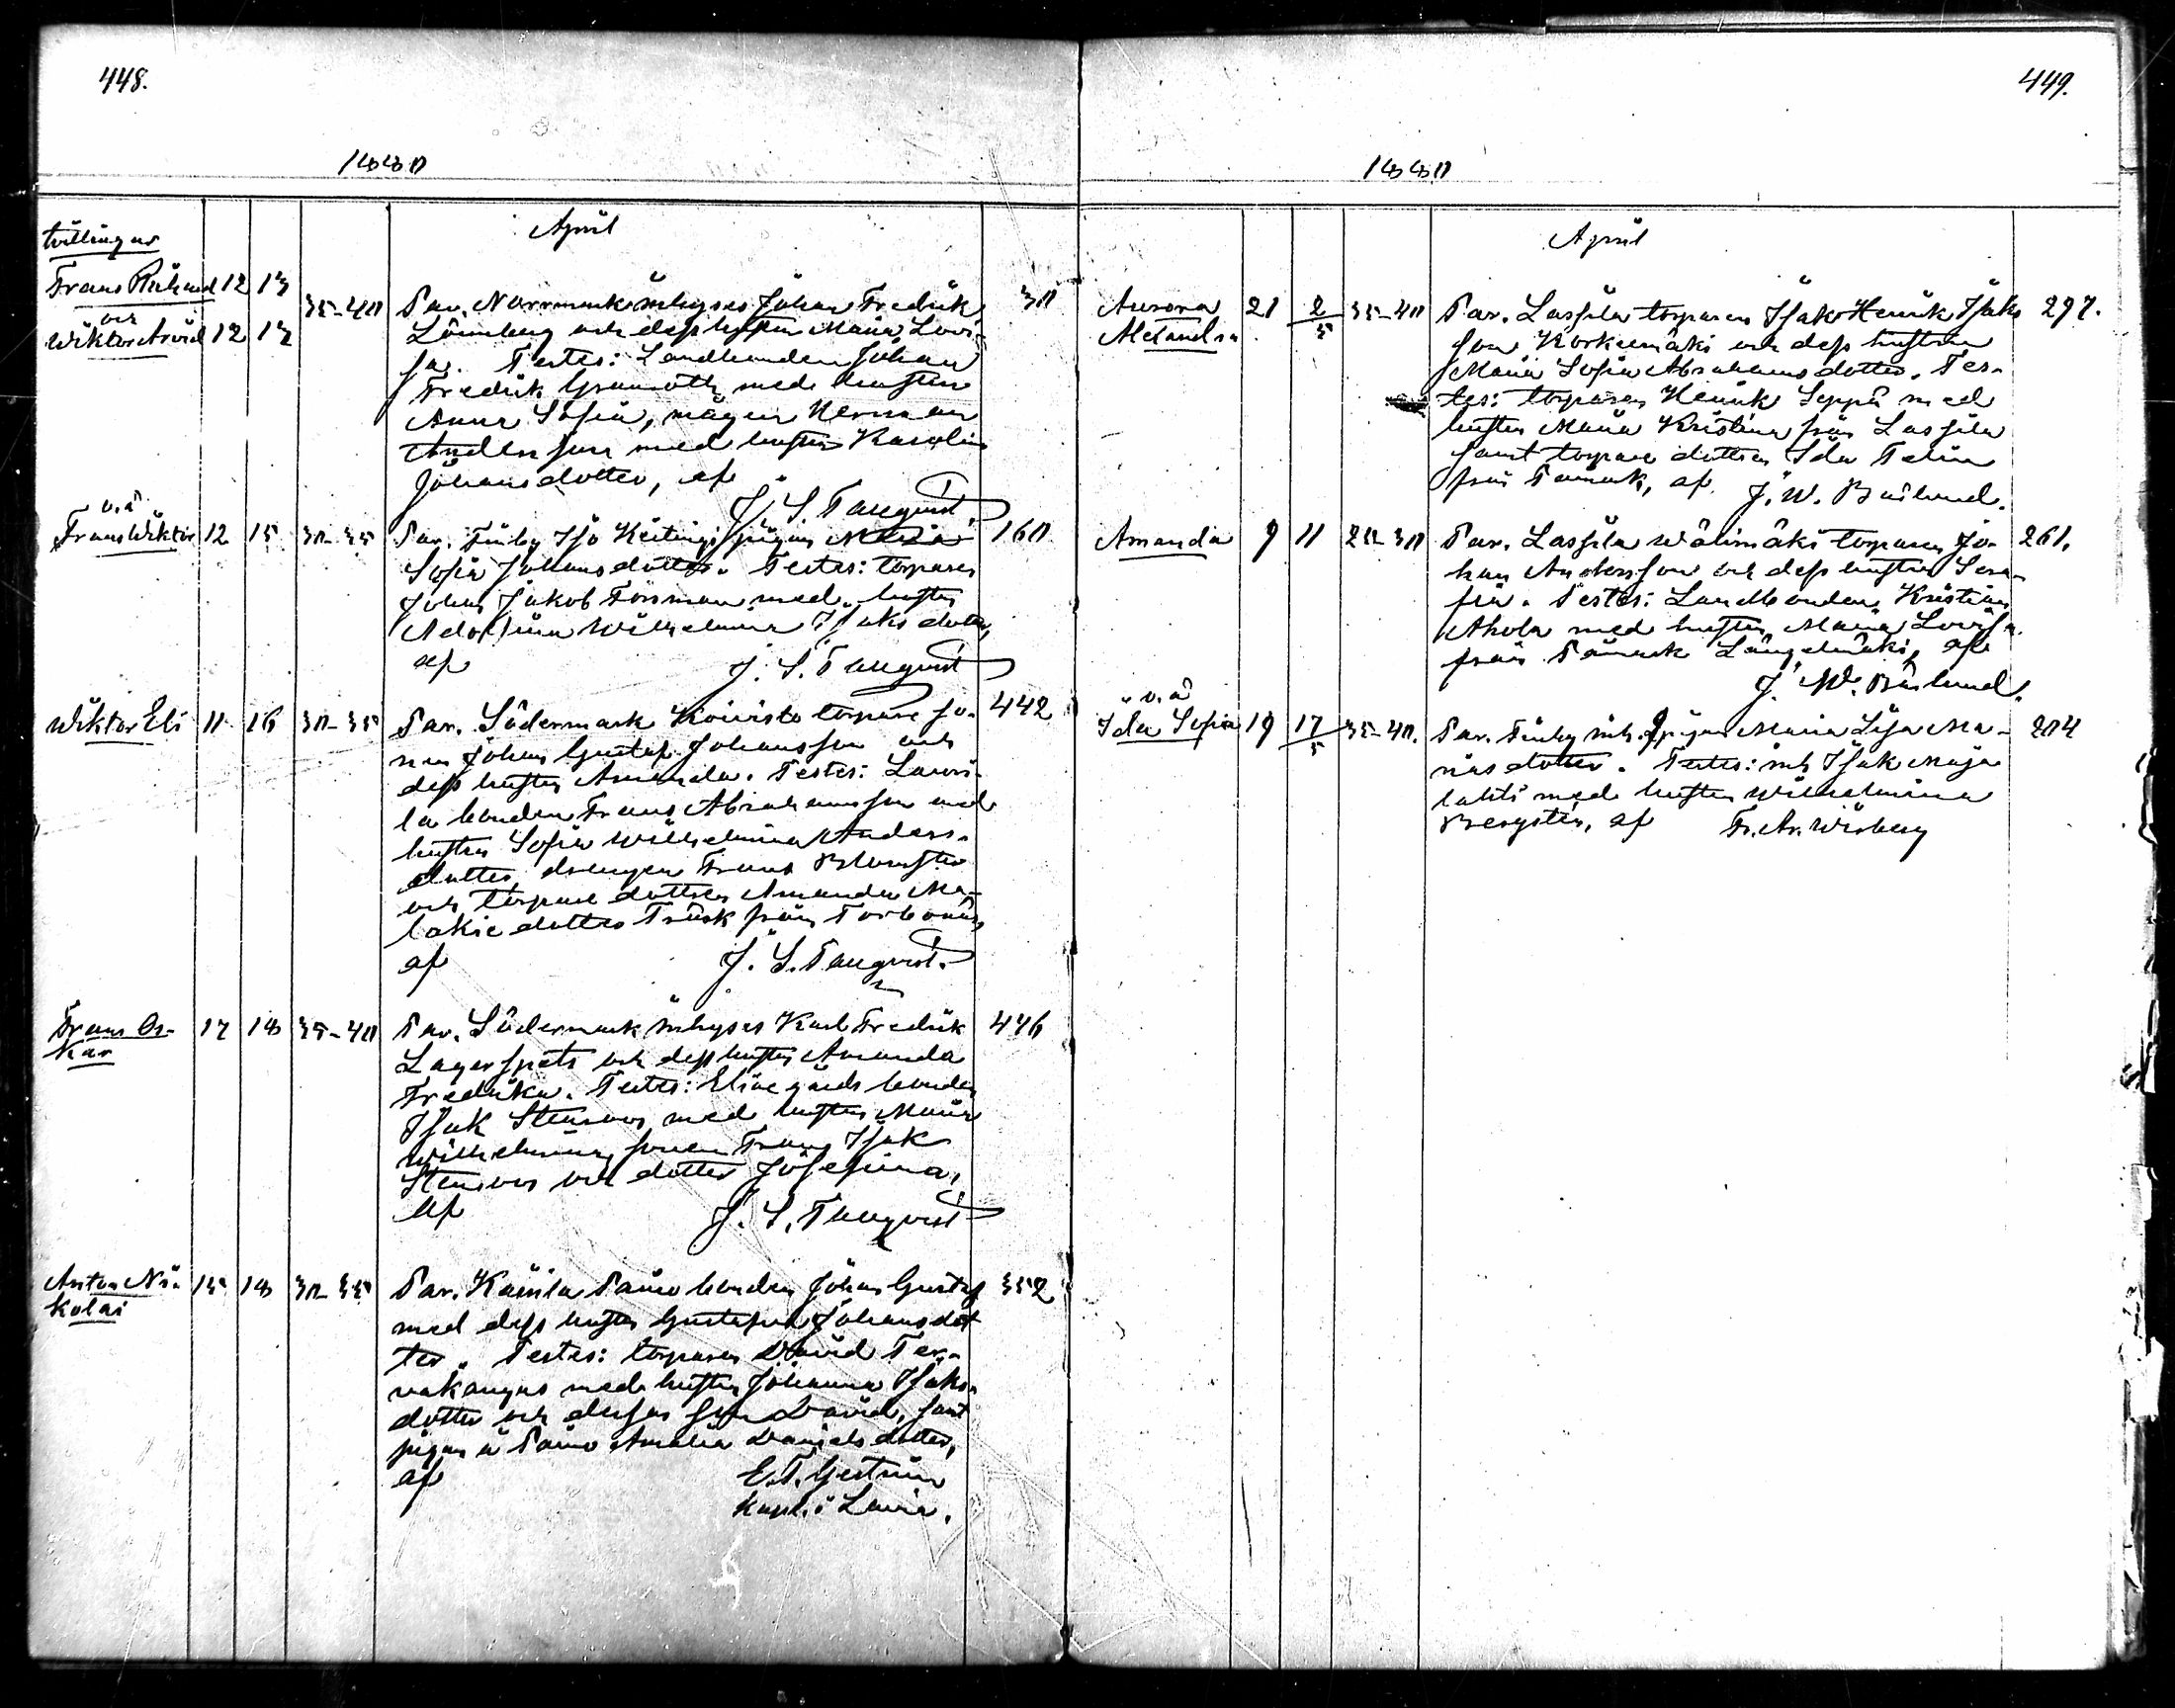 448.
1880
April
tvillingar
Frans Rikard 12 13 35-40
och
Wiktor Arvid 12 13
Par. Norrmark inhyses Johan Fredrik 30
Lönnberg och dess hustru Maria Lovi-
sa. Testes: Landbonden Johan
Fredrik Granroth med hustru
Anna Sofia, mågen Herman
Andersson med hustru Karolin
Johansdotter, af
J. S. Tanqvist
o.ä
Frans Wiktor 12 15 30-35 Par. Finby Iso Keitingi pigan Maria 160
Sofia Johansdotter. Testes: torparen
Johan Jakob Forsman med hustru
Adolfina Wilhelmina Isaks dotter,
af J. S. Tanqvist
Wiktor Eli 11 16 30-35 Par. Södermark Koivisto torpare so- 442
nen Johan Gustaf Johansson och
dess hustru Amanda. Testes: Lauri-
la bonden Frans Abrahamsson med
hustru Sofia Wilhelmina Anders-
dotter, drengen Frans Blomster
och torpare dottren Amanda Ma-
lakie dotter Träsk från Torbonäs,
af J. S. Tanqvist.
Frans Os- 17 18 35-40 Par. Södermark inhyses Karl Fredrik 446
kar
Lagerspets och dess hustru Amanda
Fredrika. Testes: Elivegårds bonden
Isak Stenroos med hustru Maria
Wilhelmina, sonen Frans Isak
Stenroos och dotter Josefina,
af J. S. Tanqvist
Anton Ni- 15 18 30-35 Par. Kaisila Paavo bonden Johan Gustaf 352
kolai
med dess hustru Gustafva Johansdot
ter. Testes: torparen David Ter-
vakangas med hustru Johanna Isaks-
dotter och deras son David, samt
pigan å Paavo Amalia Daniels dotter,
af E. T. Gestrin
kapl. i Lavia.
449.
1880
April
Aurora 21 2/5 35-40 Par. Lassila torparen Isak Henrik Isaks 297.
Melandra
son Korkeemäki och dess hustru
Maria Sofia Abrahamsdotter. Tes-
tes: torparen Henrik Seppä med
hustru Maria Kristina från Lassila
samt torpare dottren Ida
från Pämark, af J. W. Bäcklund.
Amanda 9 11 25-30 Par. Lassila Wälimäki torparen Jo- 261.
han Andersson och dess hustru Sera-
fia. Testes: Landbonden Kristian
Ahola med hustru Maria Lovisa
från Pämark Längelmäki, af
J. W. Bäcklund.
o.ä
Ida Sofia 19 17/5 35-40. Par. Finby inh. pigan Maria Lisa Ma- 204
riasdotter. Testes: inh Isak Maja
lahti med hustru Wilhelmina
Bergsten, af Fr. Ar. Wisberg